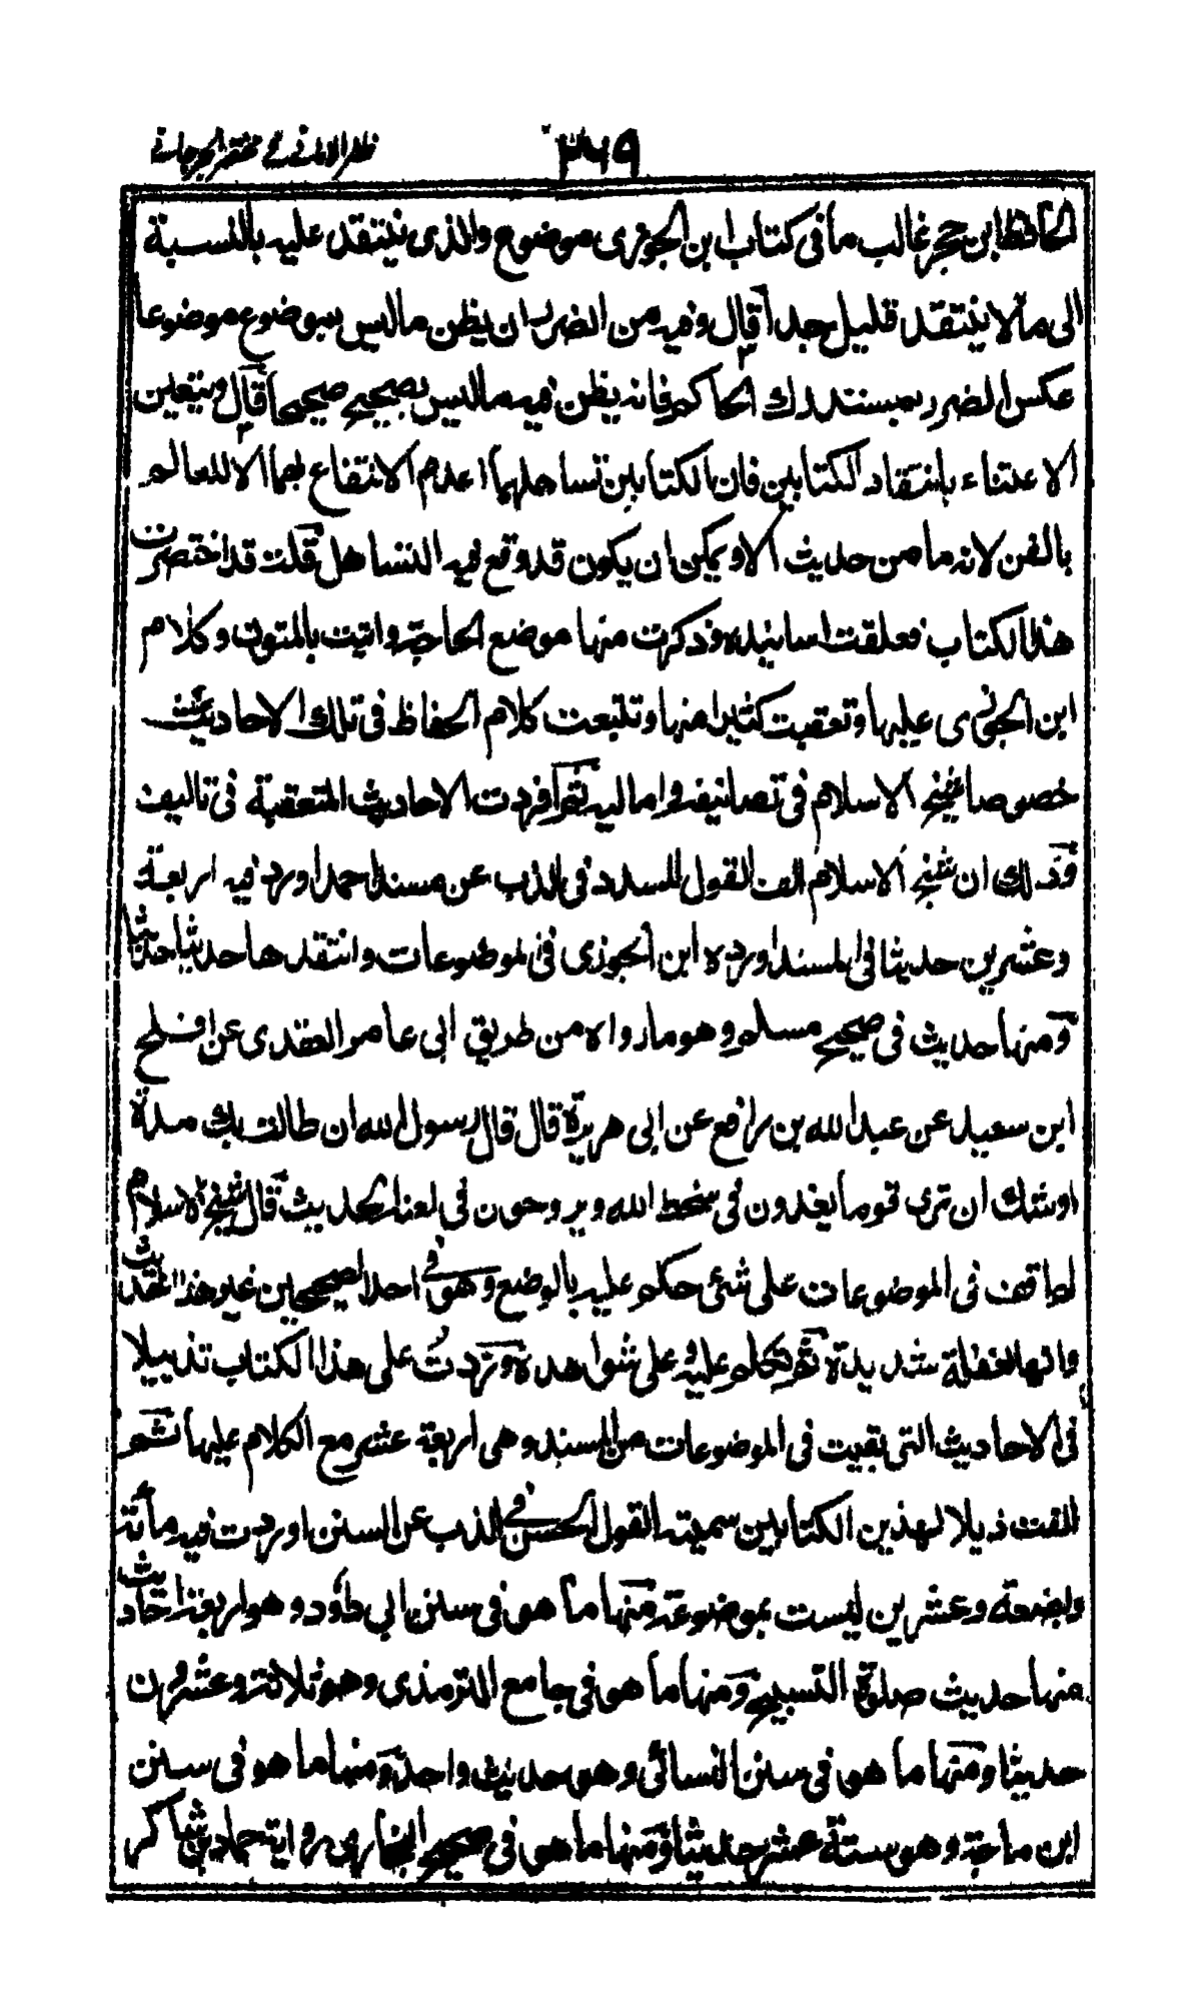 ٢٦٩ ظفر الامانى فى مختصر الجرجانى
الحافظ ابن حجر غالب ما فى كتاب ابن الجوزى موضوع والذى ينتقد عليه بالنسبة
الى ما لا ينتقد قليل جدا قال وفيه من الضرر ان يظن ما ليس بموضوع موضوعا
عكس الضرر بمستدرك الحاكم فانه يظن فيه ما ليس بصحيح صحيحا قال ويتعين
الاعتناء بانتقاد الكتابين فان الكتابين تساهلهما اعدم الانتفاع بهما الا للعالم
بالفن لانه ما من حديث الا ويمكن ان يكون قد وقع فيه التساهل قلت قد اختصرت
هذا الكتاب فعلقت اسانيده وذكرت منها موضع الحاجة واتيت بالمتون وكلام
ابن الجوزى عليها وتعقبت كثيرا منها وتتبعت كلام الحفاظ فى تلك الاحاديث
خصوصا شيخ الاسلام فى تصانيفه واماليه ثم افردت الاحاديث المتعقبة فى تاليف
وذلك ان شيخ الاسلام الف القول المسدد فى الذب عن مسند احمد اورد فيه اربعة
وعشرين حديثا فى المسند اورده ابن الجوزى فى الموضوعات وانتقدها حديثا حديثا
ومنها حديث فى صحيح مسلم وهو ما رواه من طريق ابى عامر العقدى عن افلح
ابن سعيد عن عبد الله بن رافع عن ابى هريرة قال قال رسول الله ان طالت بك مدة
اوشك ان ترى قوما يغدون فى سخط الله ويروحون فى لعنه الحديث قال شيخ الاسلام
لم اقف فى الموضوعات على شئ حكم عليه بالوضع وهو فى احد الصحيحين غير هذا الحديث
وانها لغفلة شديدة ثم تكلم عليه وعلى شواهده وزدت على هذا الكتاب تذييلا
فى الاحاديث التى بقيت فى الموضوعات من المسند وهى اربعة عشر مع الكلام عليها ثم
الفت ذيلا لهذين الكتابين سميته القول الحسن فى الذب عن السنن اوردت فيه مائة
وبضعة وعشرين ليست بموضوعة منها ما هو فى سنن ابى داود وهو اربعة احاديث
منها حديث صلوة التسبيح ومنها ما هو فى جامع الترمذى وهو ثلاثة وعشرون
حديثا ومنها ما هو فى سنن النسائى وهو حديث واحد ومنها ما هو فى سنن
ابن ماجة وهو ستة عشر حديثا ومنها ما هو فى صحيح البخارى من رواية حماد بن شاكر